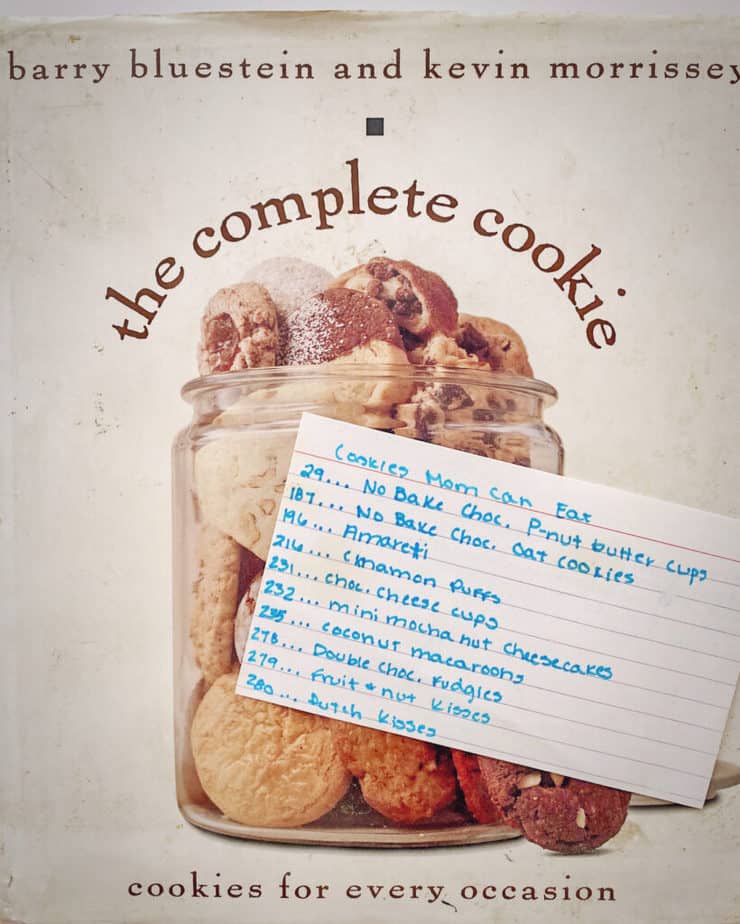 barry bluestein and kevin morrissey
the complete cookie
Cookies Mom Can Eat
29... No Bake Choc. P-nut butter cups
187... No Bake Choc. Oat Cookies
196... Amaretti
216... Cinnamon Puffs
231... choc. cheese cups
232... mini mocha nut cheesecakes
235... coconut macaroons
278... Double Choc. Fudgies
279... Fruit + nut Kisses
280... Dutch Kisses
cookies for every occasion